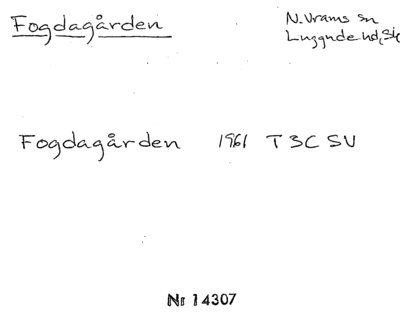 Fogdagården
N. Vrams sn
Luggude hd, Sk
Fogdagården 1961 T 3C SV
Nr 14307